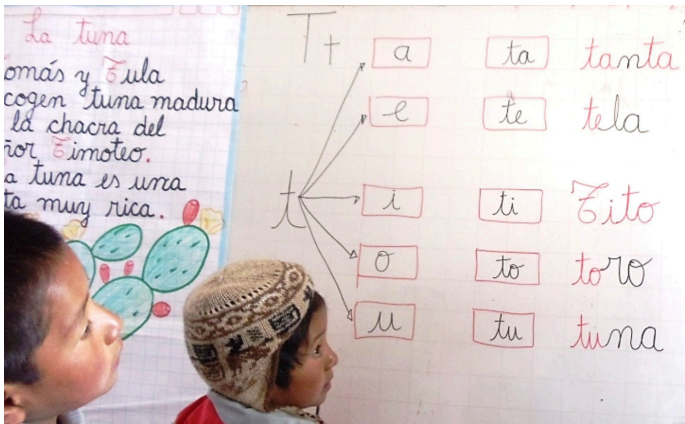 La tuna
omás y Tula
cogen tuna madura
la chacra del
ñor Timoteo.
a tuna es una
ta muy rica.
T t
a ta tanta
e te tela
t
i ti Tito
o to toro
u tu tuna